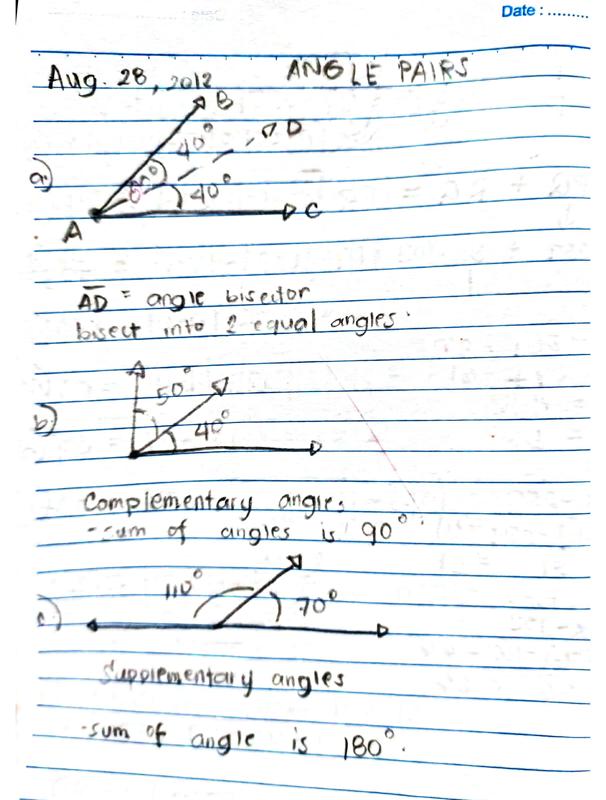 Date : .........
Aug. 28, 2012 ANGLE PAIRS
a)
B
40°
D
80°
40°
A
C
A̅D̅ = angle bisector
bisect into 2 equal angles.
b)
50°
40°
Complementary angles
-sum of angles is 90°.
c)
110°
70°
Supplementary angles
-sum of angle is 180°.